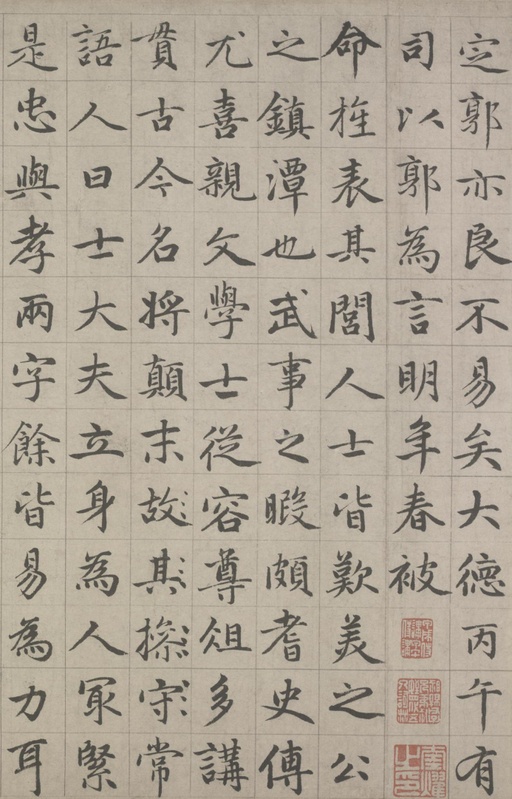 定郭亦良不易矣大德丙午有
司以郭為言明年春被
命旌表其閭人士皆歎美之公
之鎮潭也武事之暇頗耆史傳
尤喜親文學士從容尊俎多講
貫古今名將顛末故其採守常
語人曰士大夫立身為人冣緊
是忠與孝兩字餘皆易為力耳